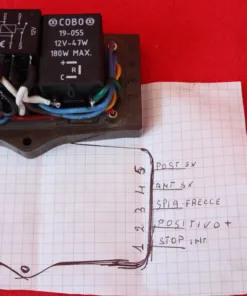 COBO
19-055
12V-47W
180W MAX.
+
R
C
5 POST SX
4 ANT SX
3 SPIA FRECCE
2 POSITIVO +
1 STOP INT